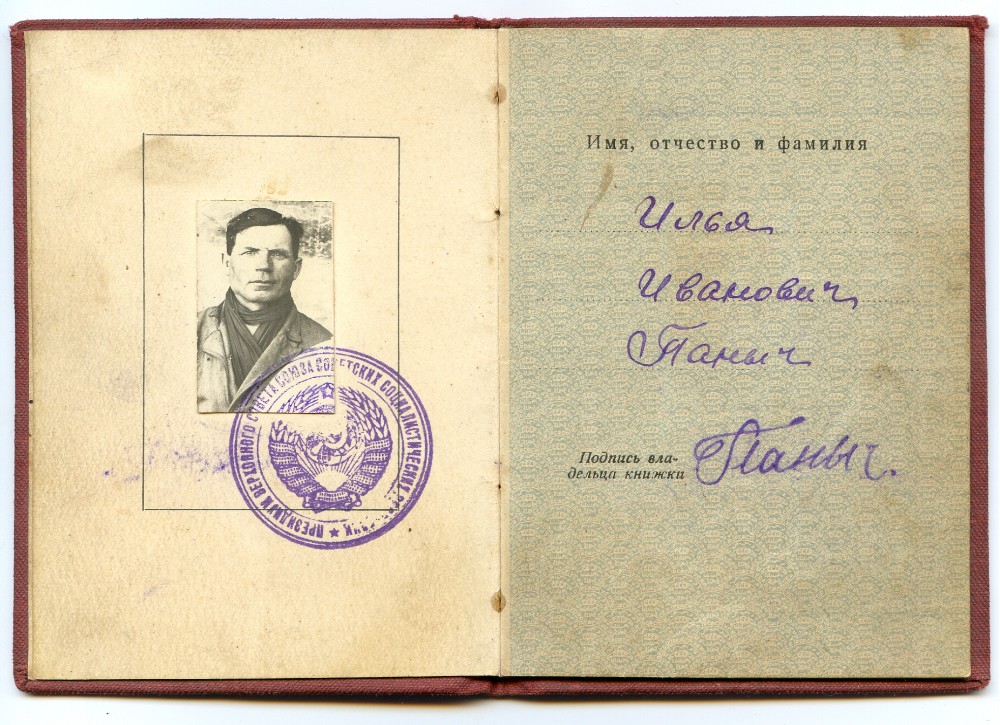 ПРЕЗИДИУМ ВЕРХОВНОГО СОВЕТА СОЮЗА СОВЕТСКИХ СОЦИАЛИСТИЧЕСКИХ
Имя, отчество и фамилия
Илья
Иванович
Паныч
Подпись вла-
дельца книжки
Паныч.